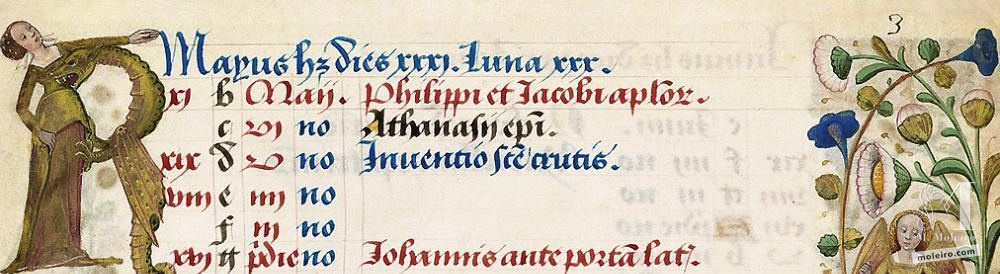 3
Mayus hꝫ dies xxxi. Luna xxx.
xi b Maij. Philippi et Jacobi aplor.
c vi no Athanasij epi.
xix d v no Inventio sce crutis.
viii e iiii no
f iii no
xvi g pdie no Johannis ante portā lat.
moleiro.com